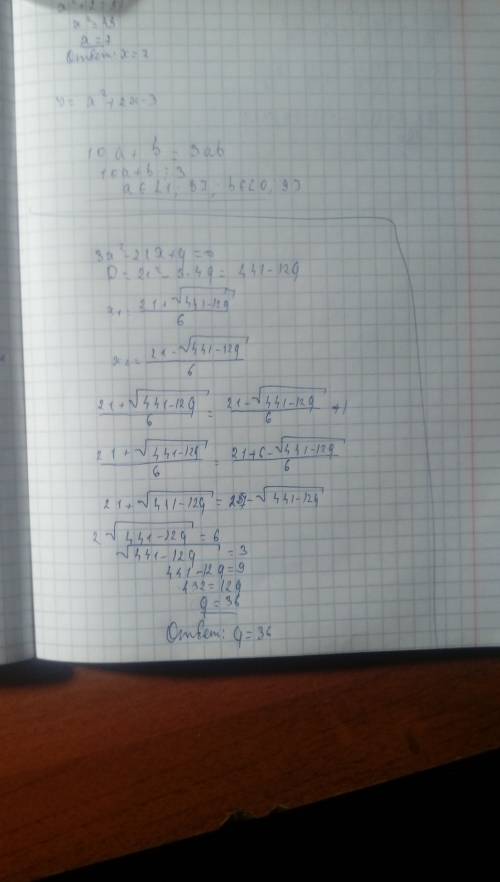 x = 7
Ответ: x = 7
y = x² + 2x - 3
10a + b = 3ab
10a + b : 3
a ∈ [1; 9]; b ∈ [0; 9]
3x² - 21x + q = 0
D = 21² - 3·4q = 441 - 12q
x₁ = (21 + √(441 - 12q)) / 6
x₂ = (21 - √(441 - 12q)) / 6
(21 + √(441 - 12q)) / 6 = (21 - √(441 - 12q)) / 6 + 1
(21 + √(441 - 12q)) / 6 = (21 + 6 - √(441 - 12q)) / 6
21 + √(441 - 12q) = 27 - √(441 - 12q)
2√(441 - 12q) = 6
√(441 - 12q) = 3
441 - 12q = 9
432 = 12q
q = 36
Ответ: q = 36